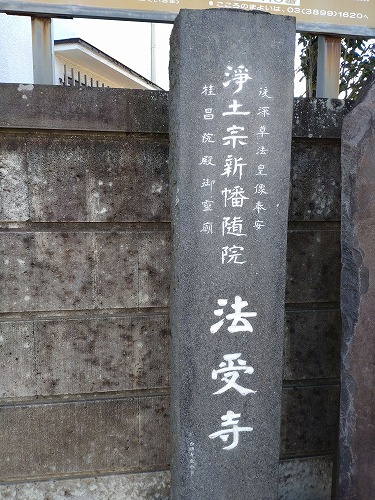 こころのまよいは、03(3899)1620へ
後深草法皇像奉安
浄土宗新幡随院 法受寺
桂昌院殿御霊廟